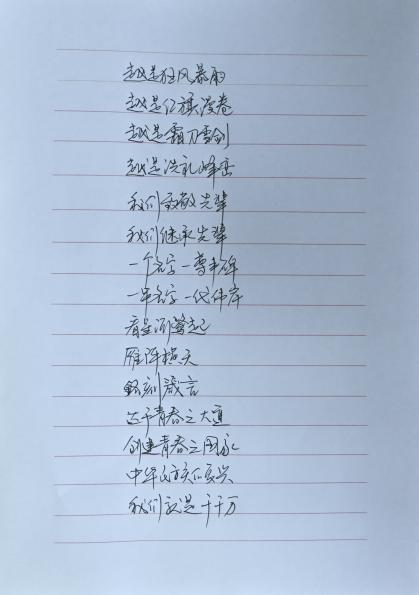 越是狂风暴雨
越是红旗漫卷
越是霜刀雪剑
越是洗礼峰峦
我们致敬先辈
我们继承先辈
一个名字一尊丰碑
一串名字一代伟岸
看星河鹭起
雁阵横天
铭刻箴言
达于青春之大道
创建青春之国家
中华民族复兴
我们就是千千万